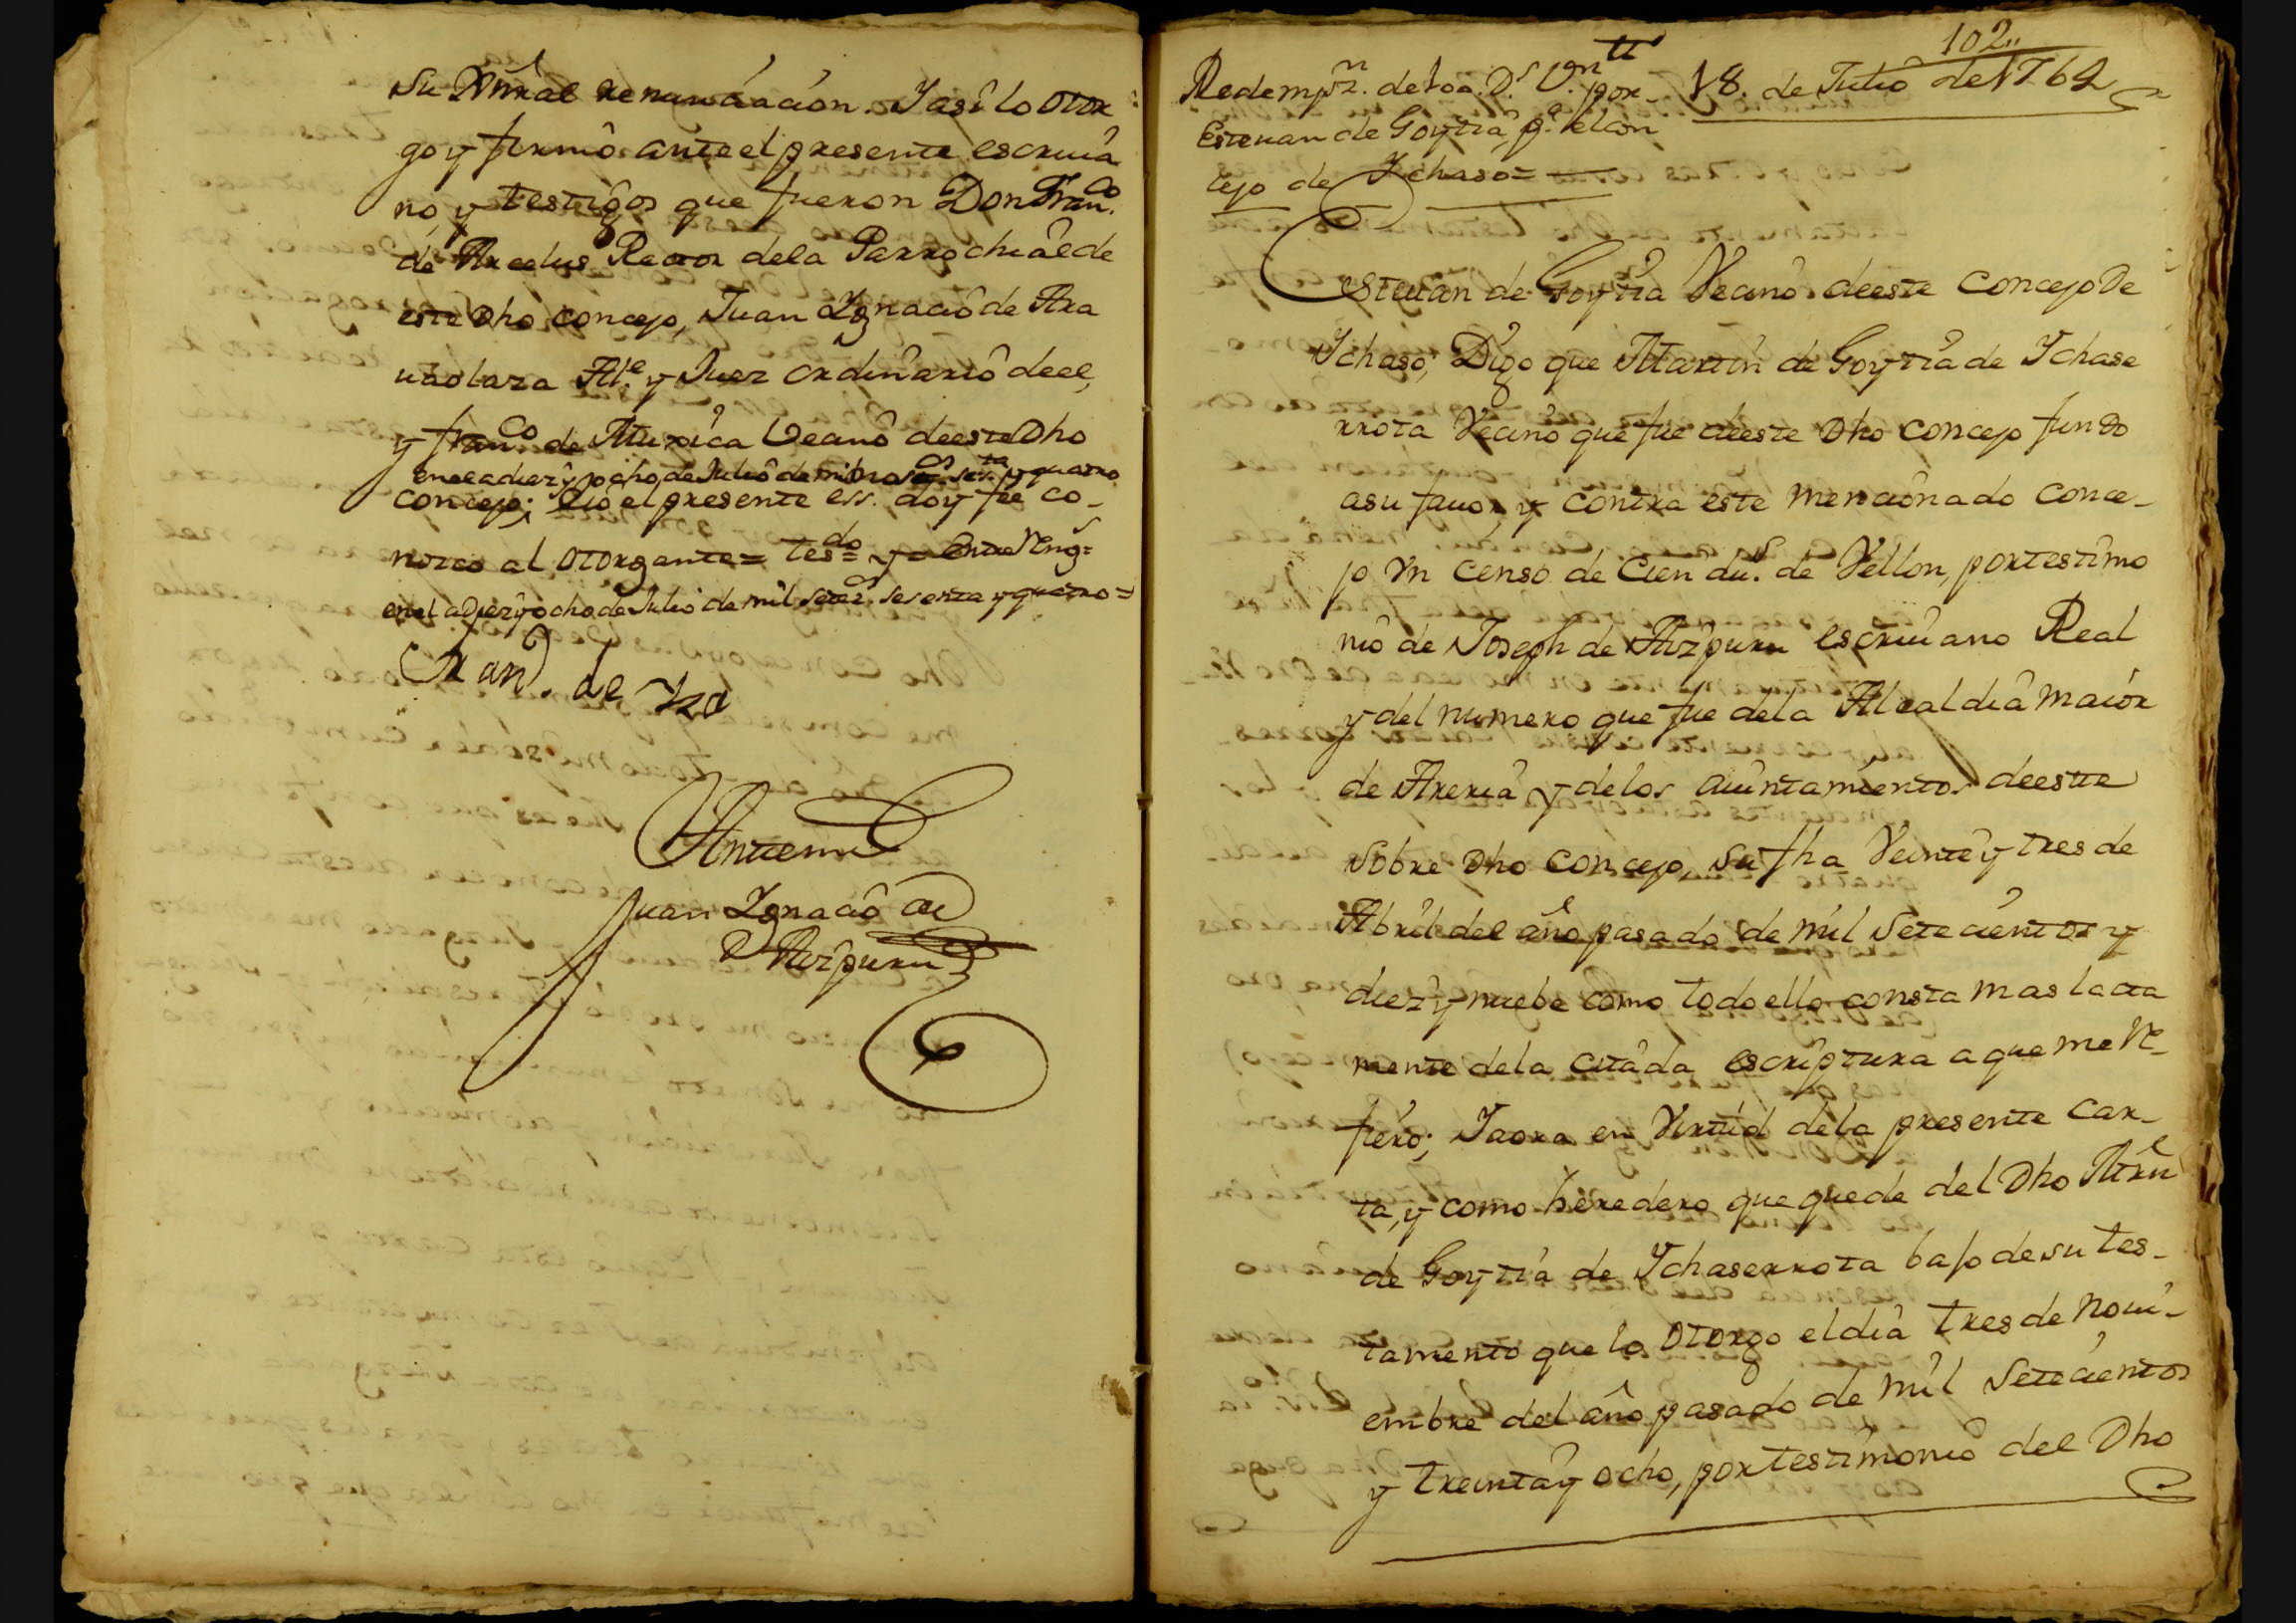 su Gnral renunciacion. Y asi lo otor
go y firmô ante el presente escriua
no, y testigos que fueron Don Franco.
de Arcelus Rector dela Parrochial de
este Dho concejo, Juan Ygnacio de Ara
uaolaza Alle. y Juez ordinario de el,
y franco de Muxica Vecino deeste Dho
enel a diez y ocho de Julio de mil setos. sesta. y quatro
concejo; e io el presente ess. doy fee co-
nozco al otorgante= tesdo= y= Entre Reng=
en el a Diez y ocho de Julio de mil setecs. sesenta y quatro=
Fran. de Yza
Antemi
Juan Ygnacio de
Aizpuru
102
Redempzn. de 100. Ds. Vn por
18. de Julio de 1764
Esteuan de Goytia, pa. el con
cejo de Ychaso=
Esteuan de Goytia Vecino deeste concejo De
Ychaso; Digo que Martin de Goytia de Ychase
rrota Vecino que fue deeste Dho concejo fundo
asu fauor, y contra este mencionado conce-
jo Vn censo de Cien dus. de Vellon, por testimo
nio de Joseph de Aizpuru escriuano Real
y del numero que fue dela Alcaldia maior
de Areria y delos aiuntamientos deeste
sobre Dho concejo, su fha Veinte y tres de
Abril del año pasado de mil Setecientos y
diez y nuebe como todo ello consta mas lata
mente dela citada escriptura a que me Re-
fiero; Y aora en Virtud dela presente Car-
ta, y como heredero que quede del Dho Mrn
de Goytia de Ychaserrota bajo de su tes-
tamento que lo otorgo el dia tres de Noui-
embre del año pasado de mil Setecientos
y treinta y ocho, por testimonio del Dho